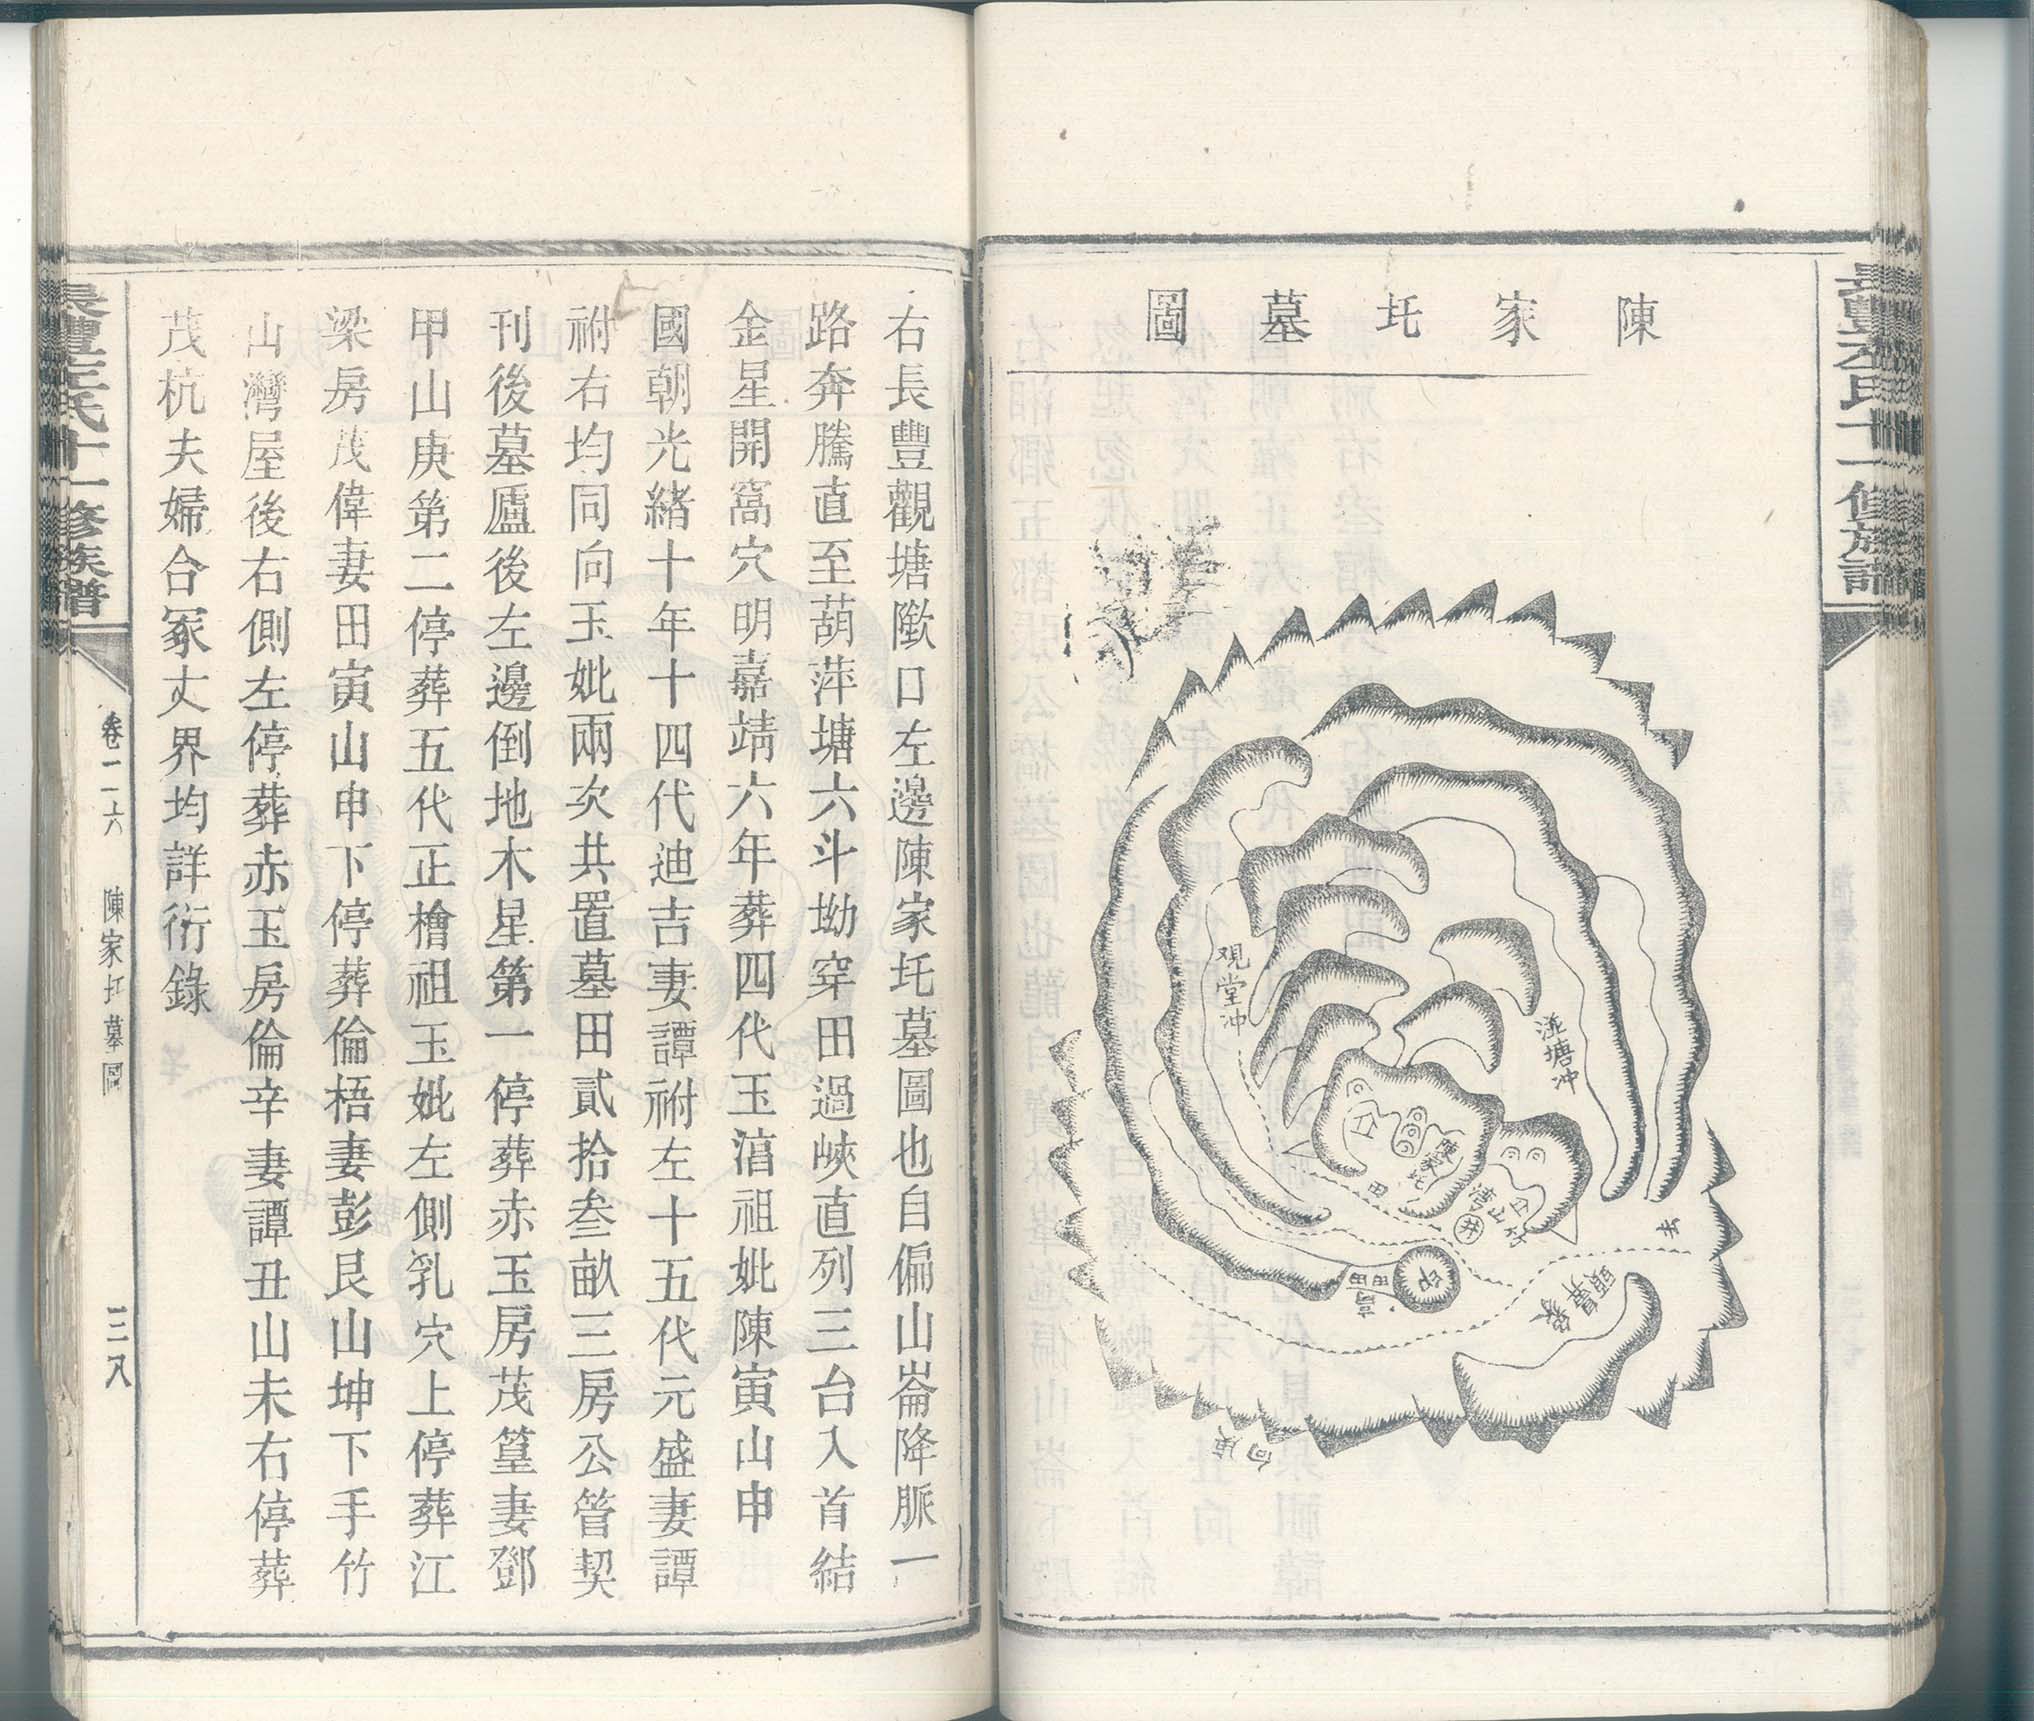 長豐左氏十一修族譜
陳家圫墓圖
观堂冲
湴塘冲
陳家圫
田
井
印
高田
右長豐觀塘隞口左邊陳家圫墓圖也自偏山崙降脈一
路奔騰直至葫萍塘六斗坳穿田過峽直列三台入首結
金星開窩穴明嘉靖六年葬四代玉湻祖妣陳寅山申
國朝光緒十年十四代迪吉妻譚祔左十五代元盛妻譚
祔右均同向玉妣兩次共置墓田貳拾叁畝三房公管契
刊後墓廬後左邊倒地木星第一停葬赤玉房茂篁妻鄧
甲山庚第二停葬五代正檜祖玉妣左側乳穴上停葬江
梁房茂偉妻田寅山申下停葬倫梧妻彭艮山坤下手竹
山灣屋後右側左停葬赤玉房倫辛妻譚丑山未右停葬
茂杭夫婦合冢丈界均詳衍錄
長豐左氏十一修族譜
卷二六
陳家圫墓圖
三八